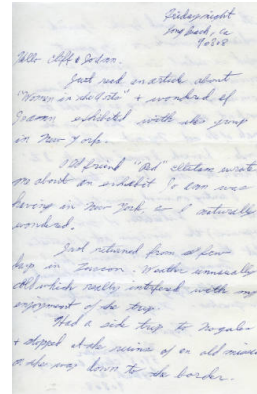 Friday night
Long Beach, Ca
90808
Hello Cliff &
Just read an article about
"Women in the Arts" & wondered if
exhibited with the group
in New York.
Old friend "Bud" wrote
me about an exhibit Jo Ann was
having in New York & I naturally
wondered.
Just returned from a few
days in Tucson. Weather unusually
which really interfered with my
enjoyment of the trip.
Had a side trip to Nogales
& stopped at the ruins of an old mission
on the way down to the border.